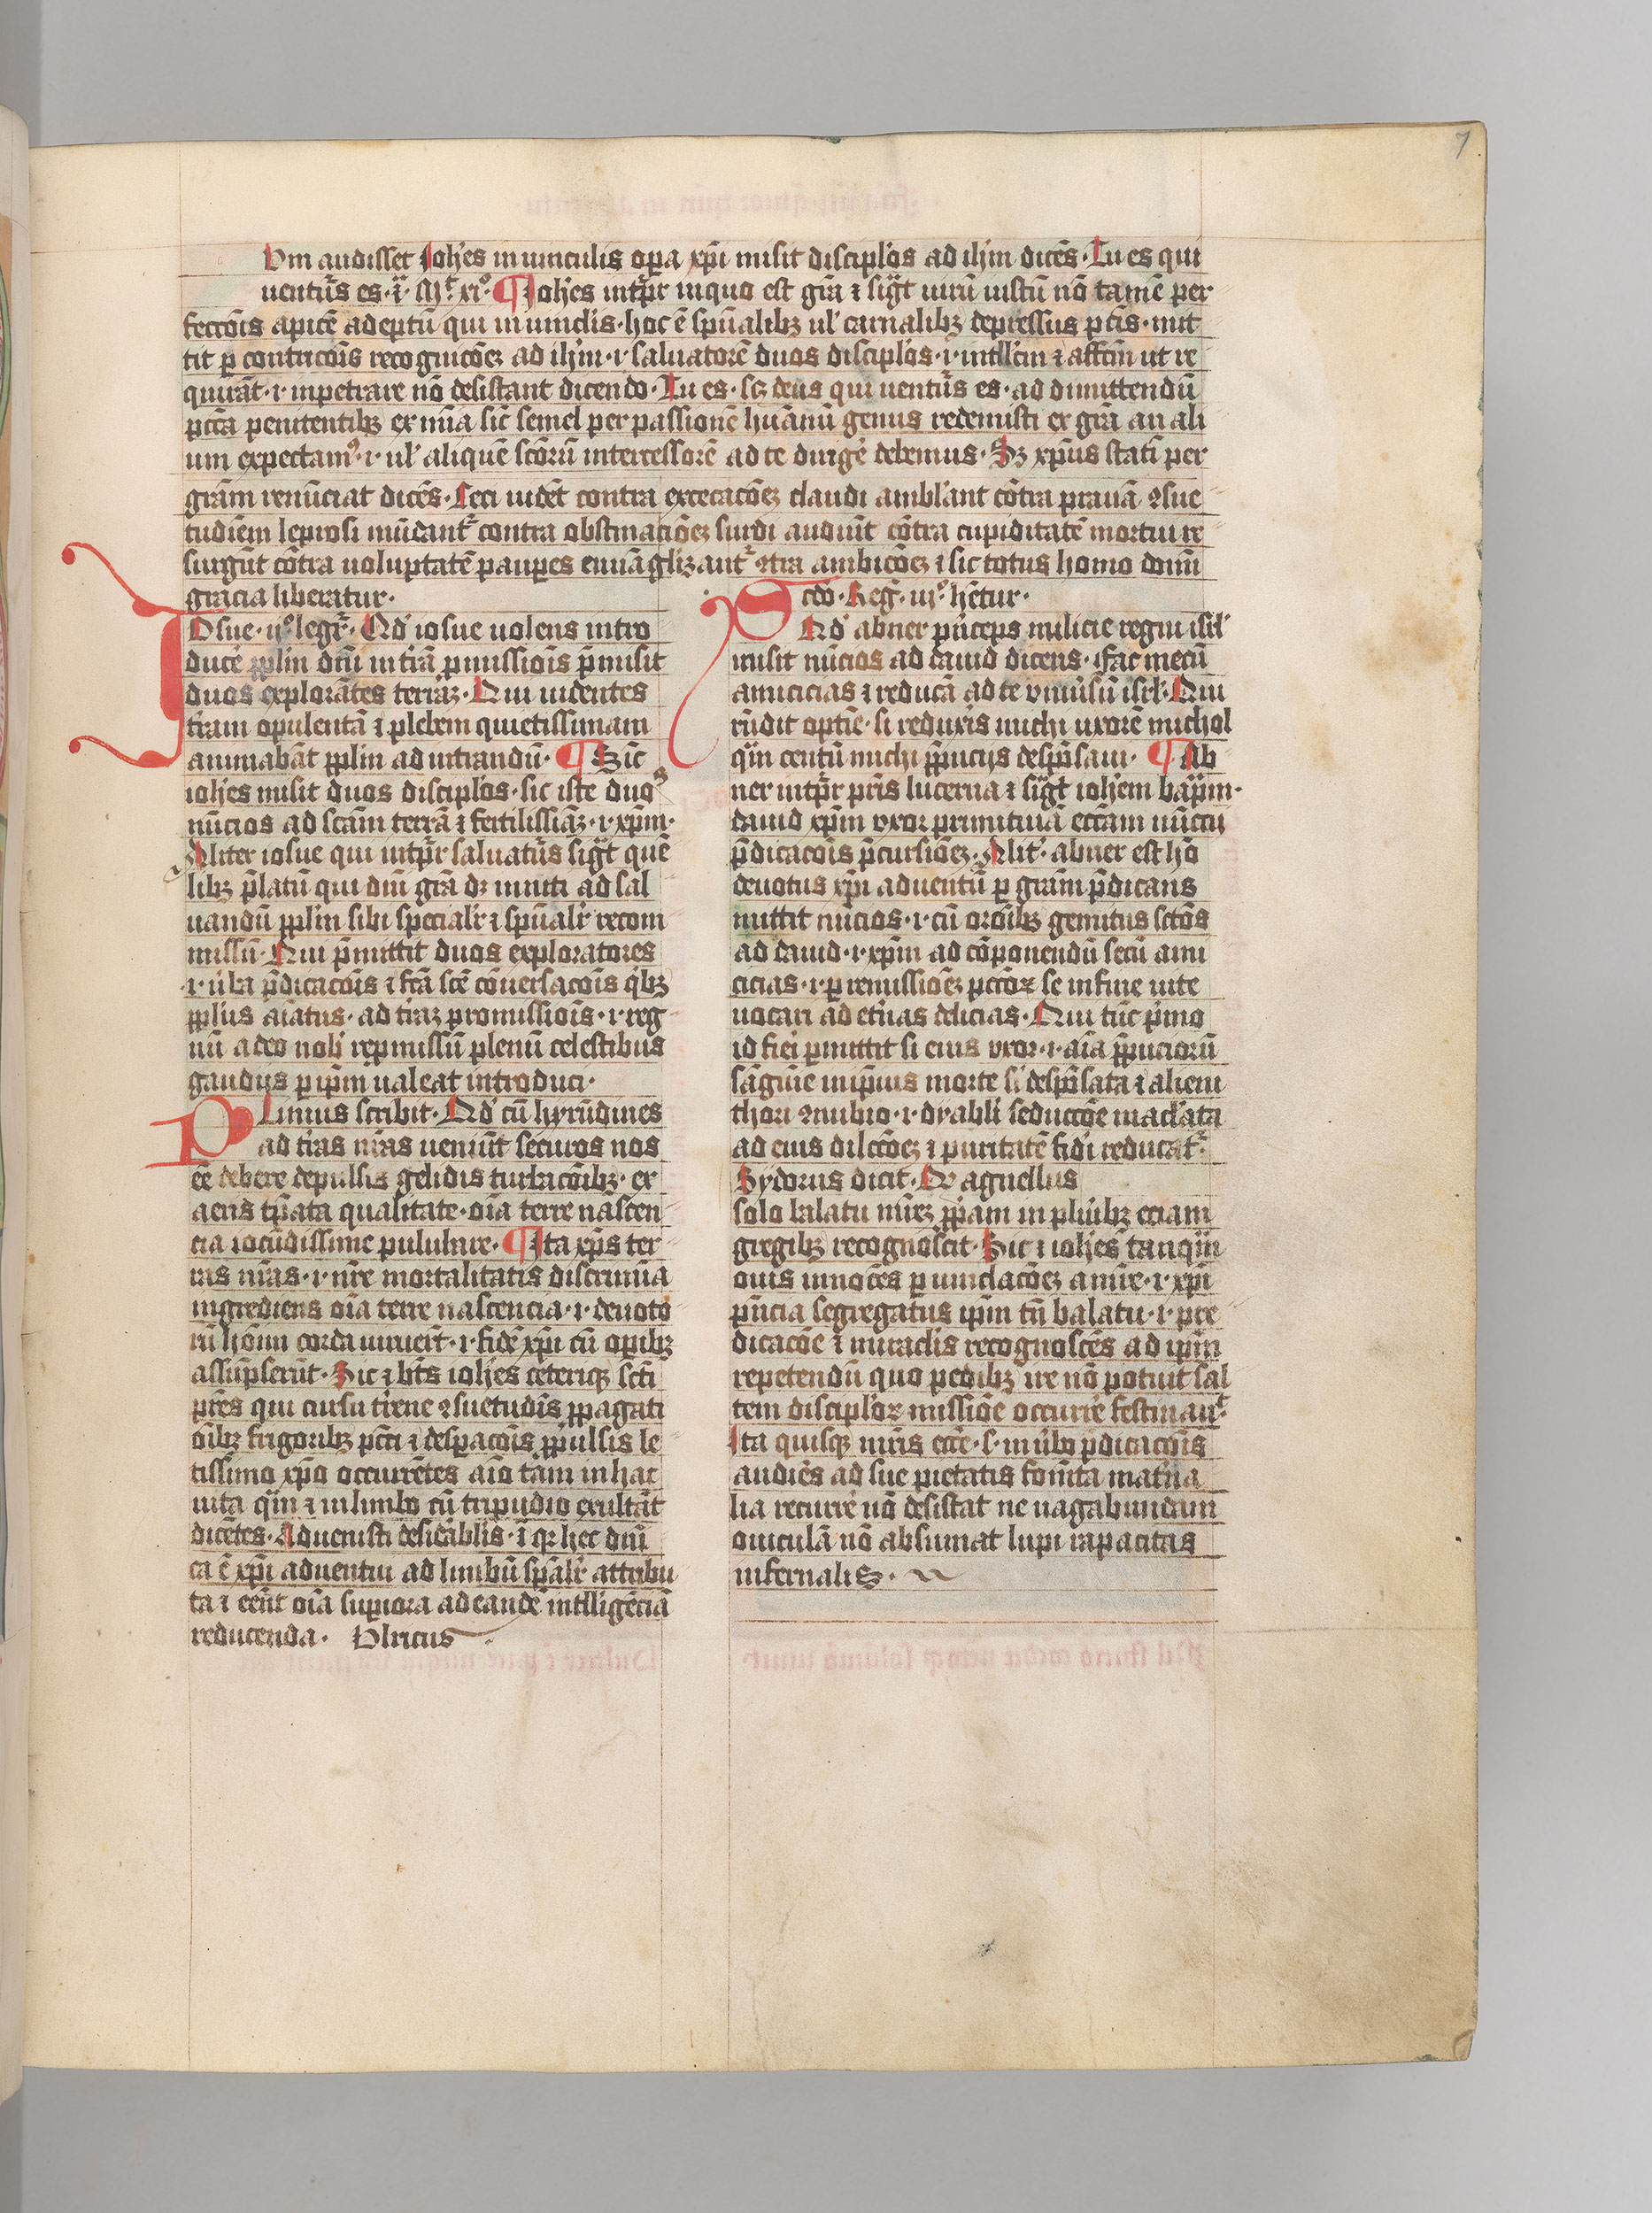 7
Um audisset Joh̄es in uinculis op̄a xp̄i misit discipl'os ad ih̄m dicēs · Tu es qui
uentur̄s es · ⁊c̄ · Mt̄ xiº ¶ Joh̄es int̄p̄r in quo est gr̄a ⁊ sigt̄ uirū iustū nō tamē per
fecc̄ōis apicē adeptū qui in uincl̄is · hoc ē sp̄ūalibꝫ ul' carnalibꝫ depressus pc̄tis · mit
tit ꝑ contric̄ōis recognic̄ōeꝫ ad ih̄m · i · saluatorē duos discipl'os · i · intllc̄m ⁊ affc̄m ut re
quirāt · ⁊ inpetrare nō desistant dicendo · Tu es · sꝫ deus qui uentur̄s es · ad dimittendū
pc̄cā penitentibꝫ ex mīa sic̄ semel per passionē huānū genus redemisti ex gr̄a an ali
um expectamꝰ · i · ul' aliquē sc̄orū intercessorē ad te dirigē debemus · Sꝫ xp̄us statī per
gr̄am renūciat dicēs · Ceci uidēt contra excecac̄ōeꝫ claudi ambl'ant cōtra prauā ꝯsue
tudīem leprosi mūdant᷑ contra obstinac̄ōeꝫ surdi audiūt cōtra cupiditatē mortui re
surgūt cōtra uoluptatē paupes euuāglizant᷑ ꝯtra ambic̄ōeꝫ ⁊ sic totus homo domī
gracia liberatur ·
Josue · ijº leg᷑ · Qd' iosue uolens intro
ducē pp̄lm dn̄i in tr̄ā ꝑmissiōis p̄misit
duos explorātes terrāꝫ · Qui uidentes
tr̄am opulentā ⁊ plebem quietissimam
animabāt pp̄lm ad intrandū · ¶ Sic̄
ioh̄es misit duos discipl'os · sic iste duoˢ
nūcios ad sc̄am terrā ⁊ fertilissīaꝫ · i · xp̄m ·
Aliter iosue qui int̄p̄r saluatur̄s sigt̄ quē
libꝫ p̄latū qui dīn gr̄a dꝫ inniti ad sal
uandū pp̄lm sibi specialr̄ ⁊ sp̄ūalr̄ recom
missū · Qui p̄mittit duos exploratores
· i · ūba p̄dicac̄ōis ⁊ fc̄ā sc̄ē cōuersac̄ōis qībꝫ
pp̄lus aīatus · ad tr̄aꝫ promissiōis · i · reg
nū a deo nob' repmissū plenū celestibus
gaudijs ꝑ ip̄m ualeat introduci ·
Plinius scribit · Qd' cū hyrūdines
ad tr̄as nr̄as ueniūt securos nos
eē debere depulsis gelidis turbac̄ōibꝫ · ex
aeris tp̄ata qualitate · oīa terre nascen
cia iocūdissime pululare · ¶ Ita xp̄s ter
ras nr̄as · i · nr̄e mortalitatis discrimīa
ingrediens oīa terre nascencia · i · deuoto
rū hōīm corda uiruerūt · i · fidē xp̄i cū opibꝫ
assūpserūt · Sic ⁊ bt̄s ioh̄es ceteriqꝫ sc̄ti
pr̄es qui cursu tr̄ene ꝯsuetudīs ꝓpagati
oībꝫ frigoribꝫ pc̄ti ⁊ despac̄ōis ꝓpulsis le
tissimo xp̄o occurrētes aīo tam in hac
uita q̄m ⁊ in limbo cū tripudio exultāt
dicētes · Aduenisti desid'abl'is · ⁊c̄ qꝛ hec dnī
ca ē xp̄i aduentui ad limbū sp̄alr̄ attribu
ta ⁊ eēnt oīa supiora ad eandē intlligēciā
reducenda · Ulricus
Scd'o · Reg̅ · iijº hētur ·
Qd' abner p̄nceps milicie regni isrl'
misit nūcios ad dauid dicens · fac mecū
amicicias ⁊ reducā ad te vniuersū isrl' · Qui
rn̄dit optīe · si reduxis michi uxorē michol
q̄m centū michi p̄pucijs desp̄saui · ¶ Ab
ner int̄p̄r pr̄is lucerna ⁊ sigt̄ ioh̄em bapm̄ ·
dauid xp̄m vxor primitiuā eccām nūcij
p̄dicac̄ōis p̄cursiōeꝫ · Alit᷑ abner est hō
deuotus xp̄i aduentū ꝑ gr̄am p̄dicans
mittit nūcios · i · cū or̄ōibꝫ gemitus sc̄tōs
ad dauid · i · xp̄m ad cōponendū secū ami
cicias · i · ꝑ remissiōeꝫ pc̄cōꝝ se in fine uite
uocari ad et̄nas delicias · Qui tūc p̄mo
id fiei ꝑmittit si eius vxor · i · aīa p̄puciorū
sāguīe in p̄ius morte si' desp̄sata ⁊ alieni
thori ꝯnubio · i · dyabl'i seducc̄ōe macl'ata
ad eius dilcc̄ōeꝫ ⁊ puritatē fid'i reducat᷑ ·
Hysidorus dicit · Qd' agnellus
solo balatu mr̄eꝫ ꝓpiam in plūibꝫ eciam
gregibꝫ recognoscit · Sic ⁊ ioh̄es tanq̄m
ouis innocēs ꝑ uinclac̄ōeꝫ a mr̄e · i · xp̄i
p̄ncia segregatus ip̄m tn̄ balatu · i · pre
dicac̄ōe ⁊ miraclis recognoscēs ad ip̄m
repetendū quo pedibꝫ ire nō potuit sal
tem discipl'oꝝ missiōe occurrē festinauᵗ ·
Ita quisqꝫ mr̄is ecc̄e · s · in ūbo p̄dicac̄ōis
audiēs ad sue pietatis fom̄ta mat̄na
lia recurrē nō desistat ne uagabundam
ouiculā nō absumat lupi rapacitas
infernalis ·